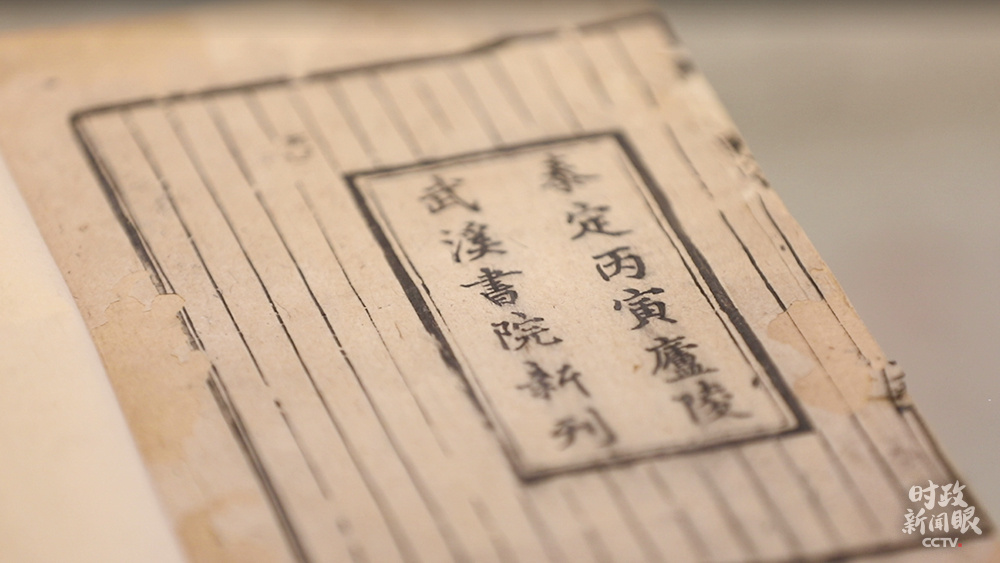 泰定丙寅廬陵
武溪書院新刊
时政
新闻眼
CCTV